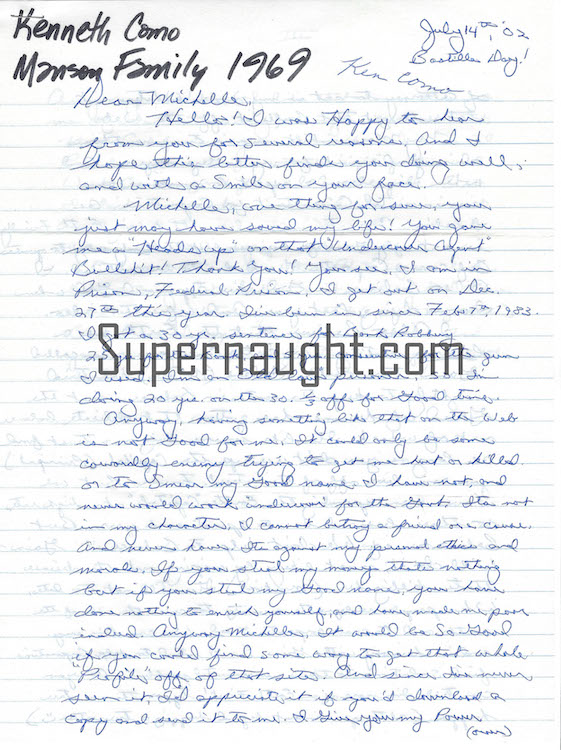 Kenneth Como
Manson Family 1969
July 14th, '02
Bastille Day!
Ken Como
Dear Michelle,
Hello! I was Happy to hear
from you for several reasons. And I
hope this letter finds you doing well,
and with a smile on your face.
Michelle, one thing for sure, you
just may have saved my life! You gave
me a "Heads up" on that "Undercover Agent"
Bullshit! Thank You! You see, I am in
Prison, Federal Prison, I get out on Dec.
27th this year. I've been in since Feb 7th, 1983.
I got a 30 yr sentence for Bank Robbery
25 yrs for the Bank and 5 yrs consecutive for the gun
I used. I'm an "Old Law" prisoner, so I'm
doing 20 yrs on the 30. 1/3 off for Good time.
Anyway, having something like that on the Web
is not Good for me. It could only be some
cowardly enemy trying to get me hurt or killed.
or to smear my Good name. I have not, and
never would work undercover for the Govt. Its not
in my character, I cannot betray a friend or a cause.
And never have. Its against my personal ethics and
morals. If you steal my money thats nothing
but if you steal my Good name, you have
done nothing to enrich yourself, and have made me poor
indeed. Anyway Michelle, It would be So Good
if you could find some way to get that whole
"Profile" off of that site. And since I've never
seen it, I'd appreciate it if you'd download a
copy and send it to me. I Give you my Power
(over)
Supernaught.com